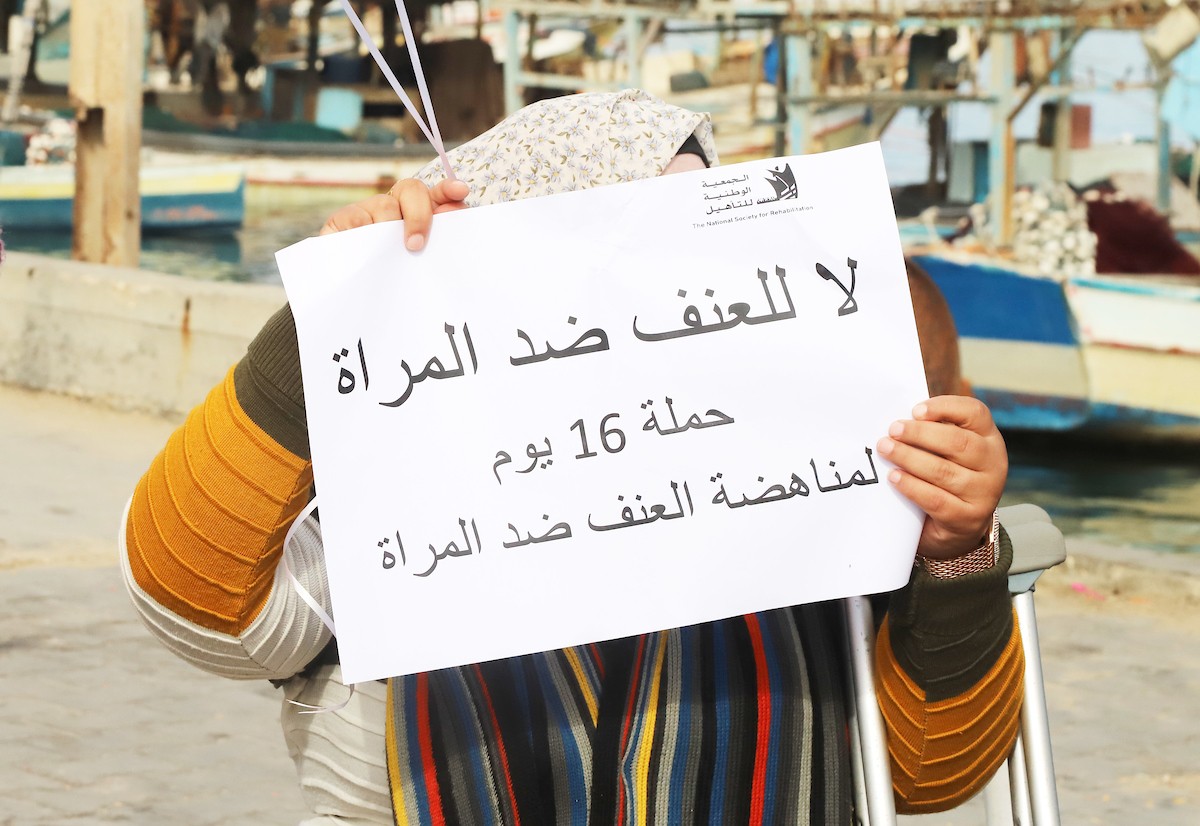 الجمعية
الوطنية
للتأهيل
The National Society for Rehabilitation
لا للعنف ضد المراة
حملة 16 يوم
لمناهضة العنف ضد المراة